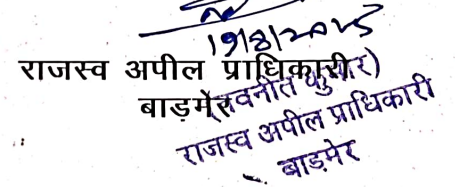 19/8/2025
राजस्व अपील प्राधिकारी
बाड़मेर
(नवनीत कुमार)
राजस्व अपील प्राधिकारी
बाड़मेर